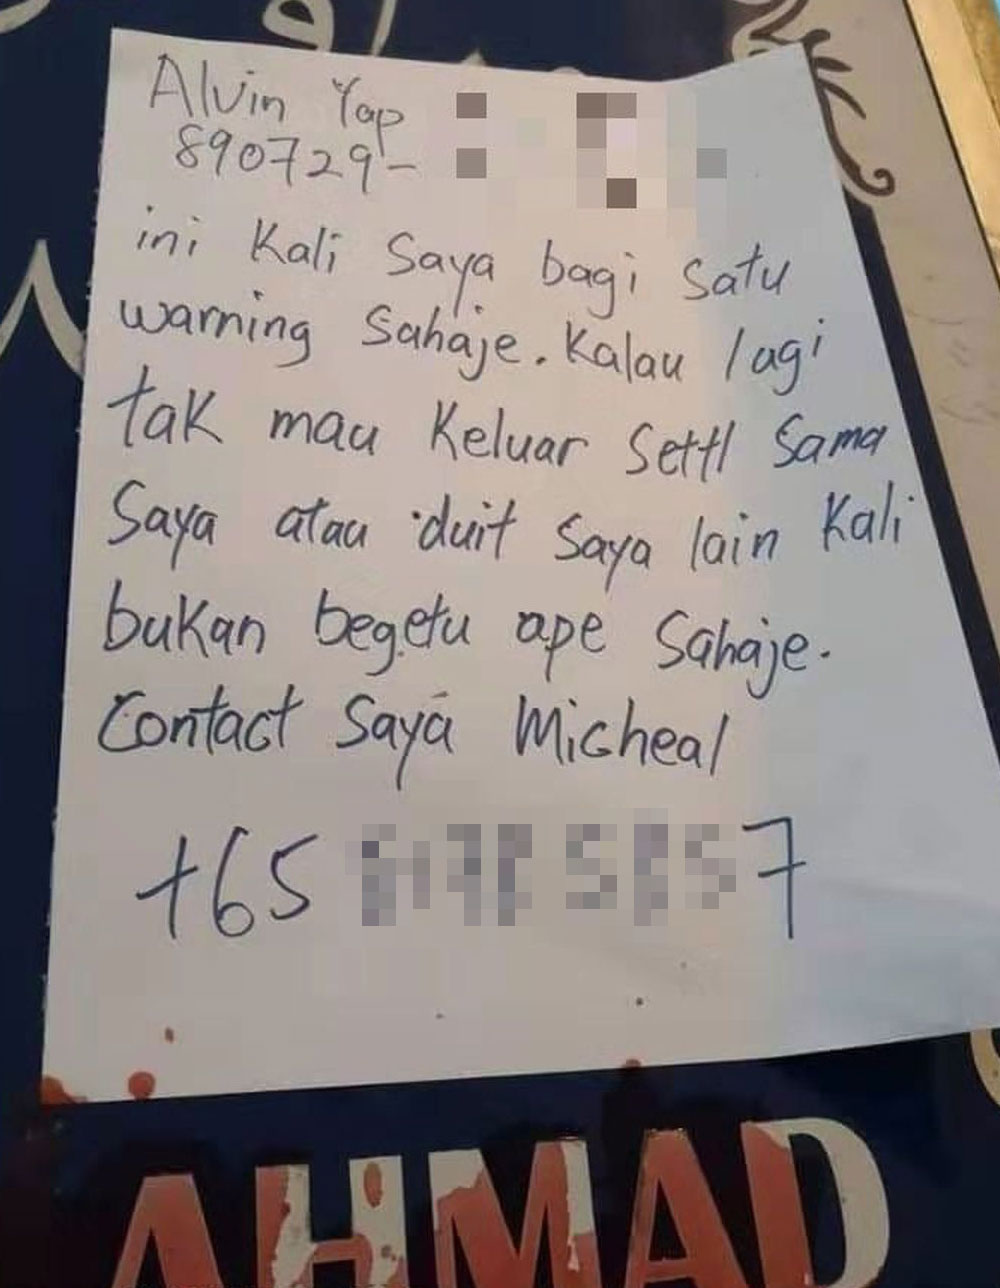 Alvin Yap
890729-
ini Kali Saya bagi Satu
warning Sahaje. Kalau lagi
tak mau Keluar Settl Sama
Saya atau duit Saya lain Kali
bukan begetu ape Sahaje.
Contact Saya Micheal
+65 7
AHMAD